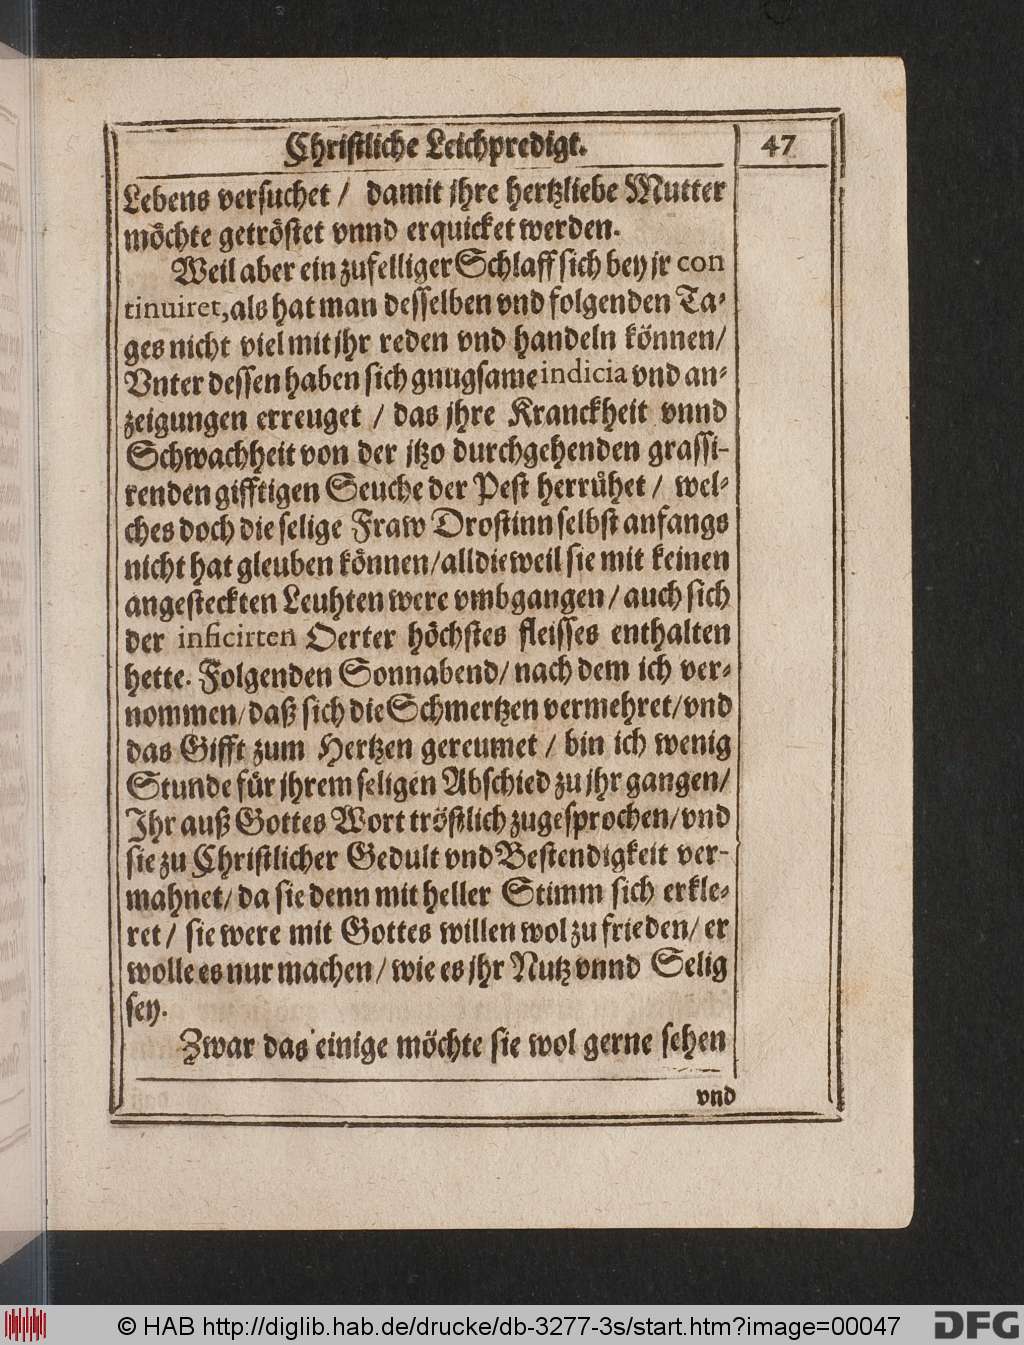 Christliche Leichpredigt. 47
Lebens versuchet / damit jhre hertzliebe Mutter
möchte getröstet vnnd erquicket werden.
Weil aber ein zufelliger Schlaff sich bey jr con
tinuiret, als hat man desselben vnd folgenden Ta-
ges nicht viel mit jhr reden vnd handeln können/
Vnter dessen haben sich gnugsame indicia vnd an-
zeigungen erreuget / das jhre Kranckheit vnnd
Schwachheit von der jtzo durchgehenden grassi-
renden gifftigen Seuche der Pest herrühet / wel-
ches doch die selige Fraw Drostinn selbst anfangs
nicht hat gleuben können/alldieweil sie mit keinen
angesteckten Leuhten were vmbgangen / auch sich
der inficirten Oerter höchstes fleisses enthalten
hette. Folgenden Sonnabend/ nach dem ich ver-
nommen/ daß sich die Schmertzen vermehret/ vnd
das Gifft zum Hertzen gereumet / bin ich wenig
Stunde für jhrem seligen Abschied zu jhr gangen/
Ihr auß Gottes Wort tröstlich zugesprochen/ vnd
sie zu Christlicher Gedult vnd Bestendigkeit ver-
mahnet/ da sie denn mit heller Stimm sich erkle-
ret / sie were mit Gottes willen wol zu frieden/ er
wolle es nur machen / wie es jhr Nutz vnnd Selig
sey.
Zwar das einige möchte sie wol gerne sehen
vnd
© HAB http://diglib.hab.de/drucke/db-3277-3s/start.htm?image=00047
DFG